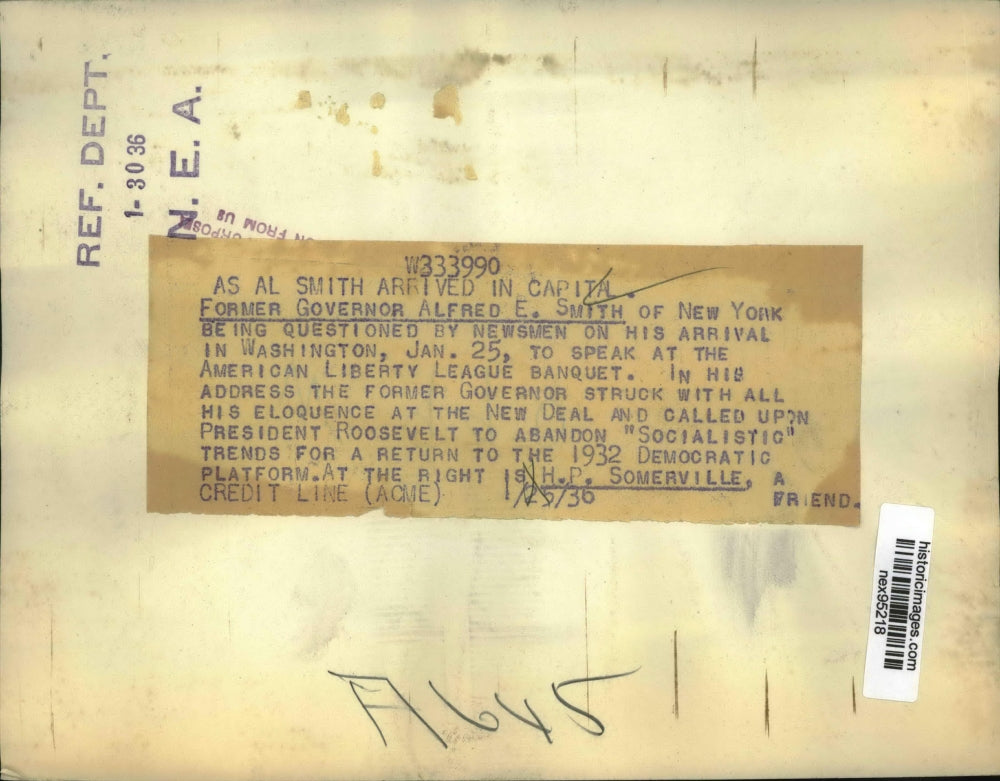 REF. DEPT.
1-30 36
N. E. A.
ON FROM US
W333990
AS AL SMITH ARRIVED IN CAPITAL.
FORMER GOVERNOR ALFRED E. SMITH OF NEW YORK
BEING QUESTIONED BY NEWSMEN ON HIS ARRIVAL
IN WASHINGTON, JAN. 25, TO SPEAK AT THE
AMERICAN LIBERTY LEAGUE BANQUET. IN HIS
ADDRESS THE FORMER GOVERNOR STRUCK WITH ALL
HIS ELOQUENCE AT THE NEW DEAL AND CALLED UPON
PRESIDENT ROOSEVELT TO ABANDON "SOCIALISTIC"
TRENDS FOR A RETURN TO THE 1932 DEMOCRATIC
PLATFORM.AT THE RIGHT IS H.P. SOMERVILLE, A
CREDIT LINE (ACME) 1/25/36 FRIEND.
historicimages.com
nex95218
A645